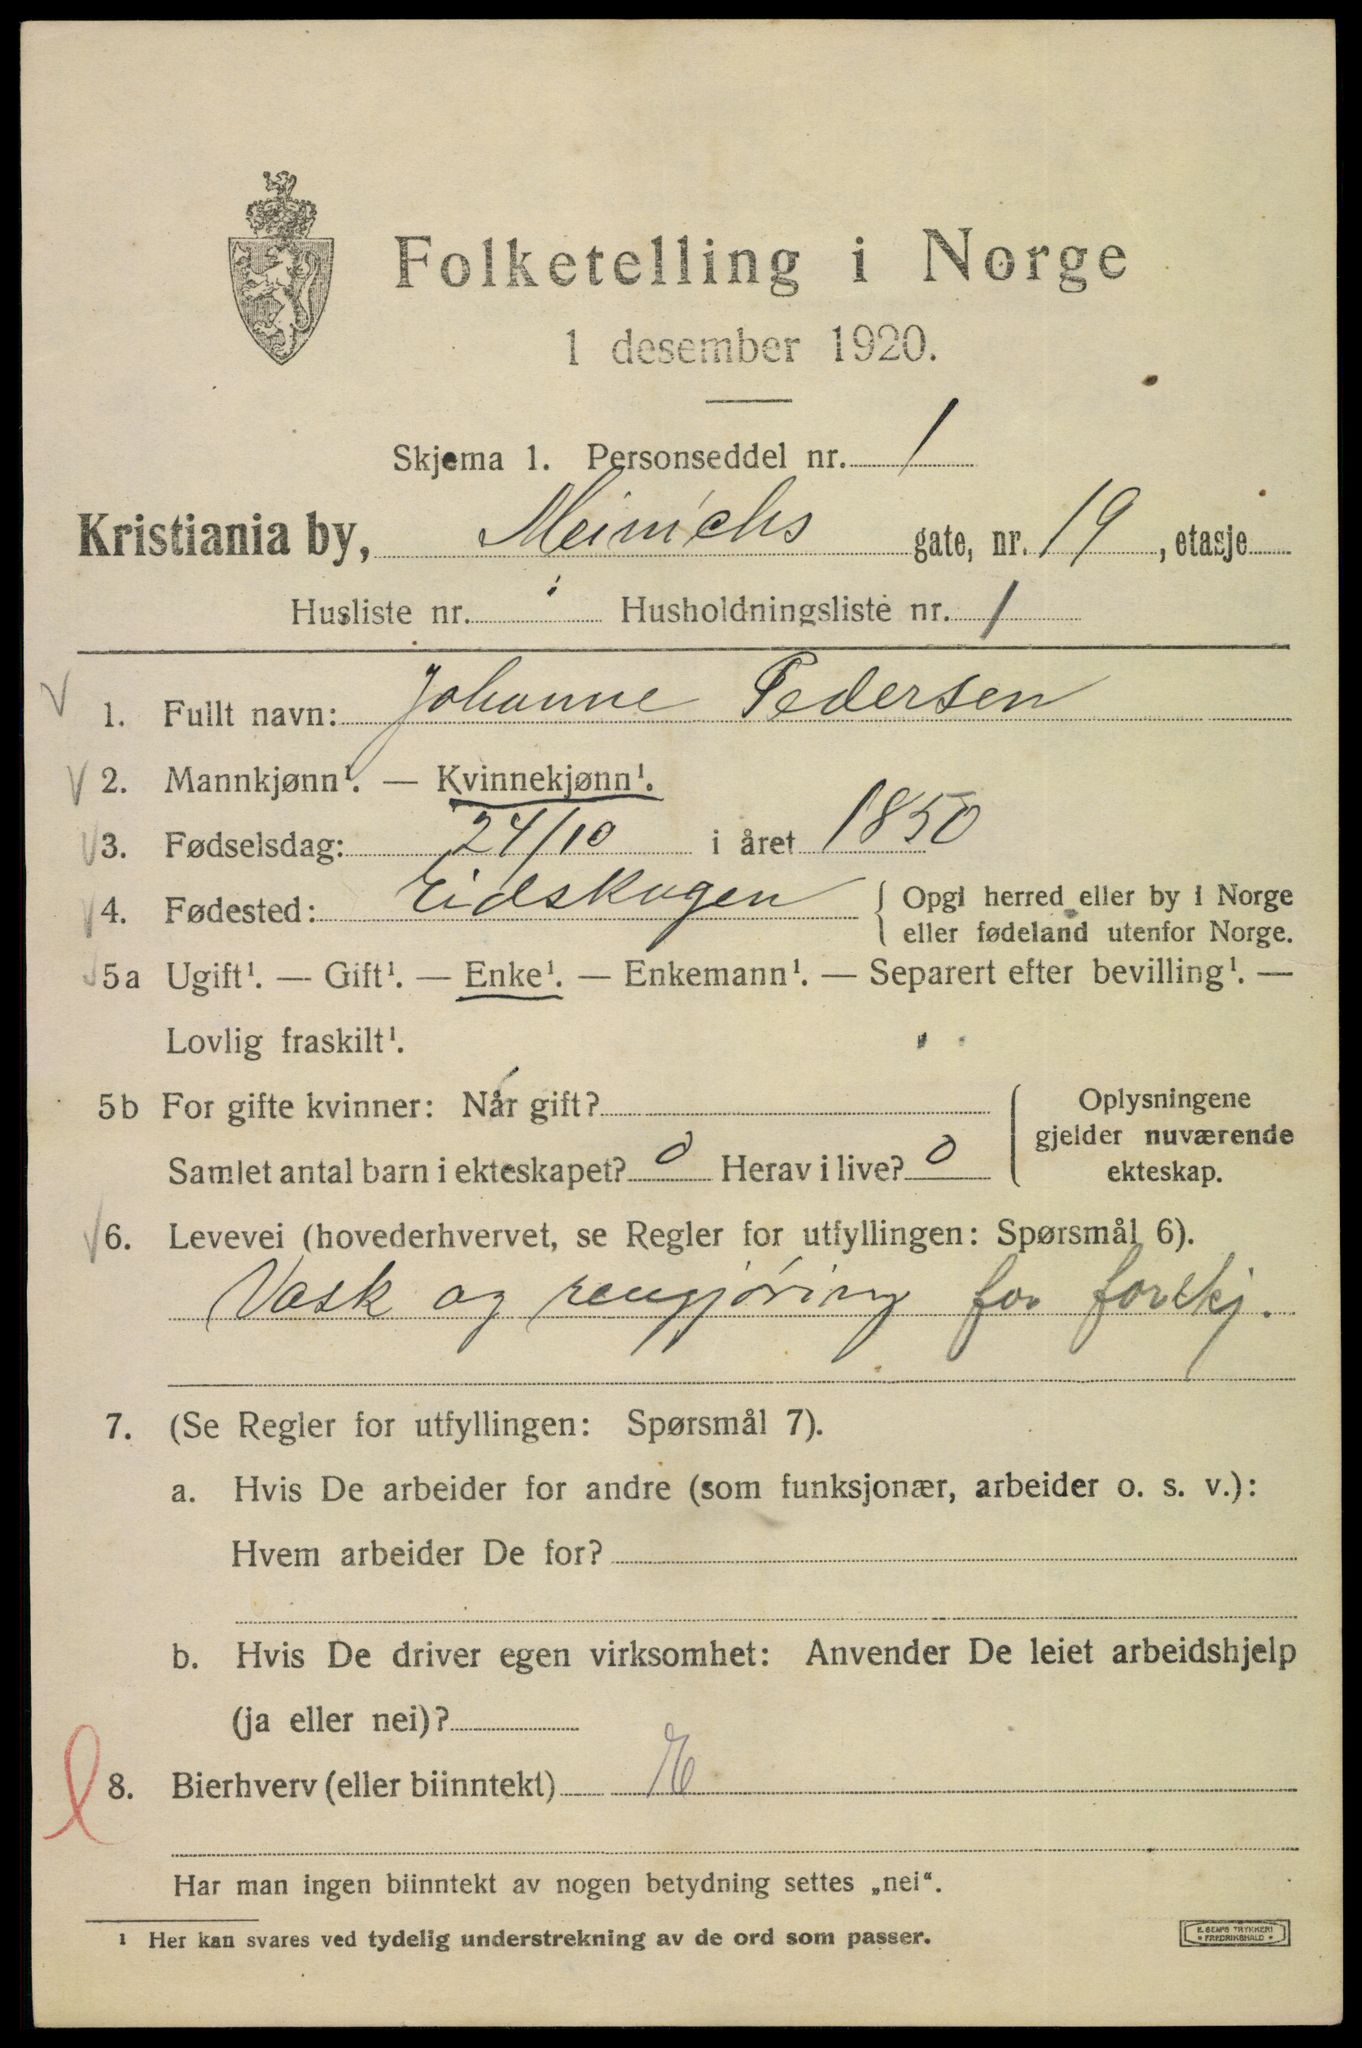 Folketelling i Norge
1 desember 1920.
Skjema 1. Personseddel nr. 1
Kristiania by, Meinichs gate, nr. 19, etasje
Husliste nr. Husholdningsliste nr. 1
1. Fullt navn: Johanne Pedersen
2. Mannkjønn¹. — Kvinnekjønn¹.
3. Fødselsdag: 24/10 i året 1850
4. Fødested: Eidskogen { Opgi herred eller by i Norge
eller fødeland utenfor Norge.
5a Ugift¹. — Gift¹. — Enke¹. — Enkemann¹. — Separert efter bevilling¹. —
Lovlig fraskilt¹.
5b For gifte kvinner: Når gift? { Oplysningene
gjelder nuværende
Samlet antal barn i ekteskapet? 0 Herav i live? 0 ekteskap.
6. Levevei (hovederhvervet, se Regler for utfyllingen: Spørsmål 6).
Vask og rengjøring for forskj.
7. (Se Regler for utfyllingen: Spørsmål 7).
a. Hvis De arbeider for andre (som funksjonær, arbeider o. s. v.):
Hvem arbeider De for?
b. Hvis De driver egen virksomhet: Anvender De leiet arbeidshjelp
(ja eller nei)?
8. Bierhverv (eller biinntekt)
Har man ingen biinntekt av nogen betydning settes „nei“.
¹ Her kan svares ved tydelig understrekning av de ord som passer.
E. SEMS TRYKKERI
FREDRIKSHALD